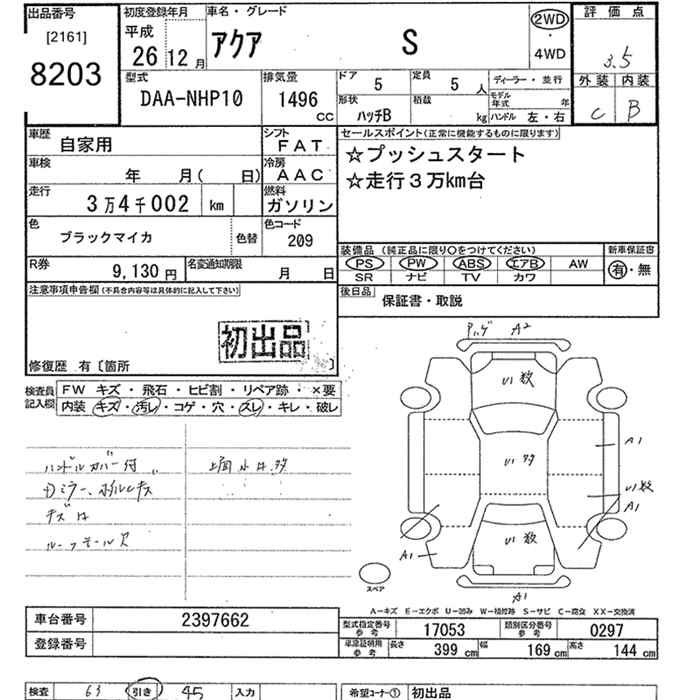 出品番号
[2161]
8203
初度登録年月
平成
26 12月
車名・グレード
アクア S
2WD
・
4WD
評価点
3.5
外装 内装
C B
型式
DAA-NHP10
排気量
1496 cc
ドア 5
定員 5 人
ディーラー・並行
モデル年式 年
形状
ハッチB
積載 kg
ハンドル 左・右
車歴
自家用
シフト
FAT
車検
年 月( 日)
冷房
AAC
走行
3万4千002 km
燃料
ガソリン
色
ブラックマイカ
色替
色コード
209
R券
9,130 円
名変通知期限
月 日
セールスポイント(正常に機能するものに限ります)
☆プッシュスタート
☆走行3万km台
装備品(純正品に限り○をつけてください)
PS PW ABS エアB AW
SR ナビ TV カワ
新車保証書
有・無
後日品
保証書・取説
注意事項申告欄(不具合内容等は具体的に記入して下さい)
初出品
修復歴 有〔箇所 〕
検査員記入欄
FW キズ・飛石・ヒビ割・リペア跡・×要
内装 キズ・汚レ・コゲ・穴・スレ・キレ・破レ
ハンドルカバー付
ルーフモール欠
A2
A1
A1
A1
A1
スペア
A-キズ E-エクボ U-凹み W-補修跡 S-サビ C-腐食 XX-交換済
車台番号
2397662
登録番号
型式指定番号 参考
17053
類別区分番号 参考
0297
車庫証明用 参考
長さ 399 cm
幅 169 cm
高さ 144 cm
検査 63
引き 45
入力
希望コーナー① 初出品